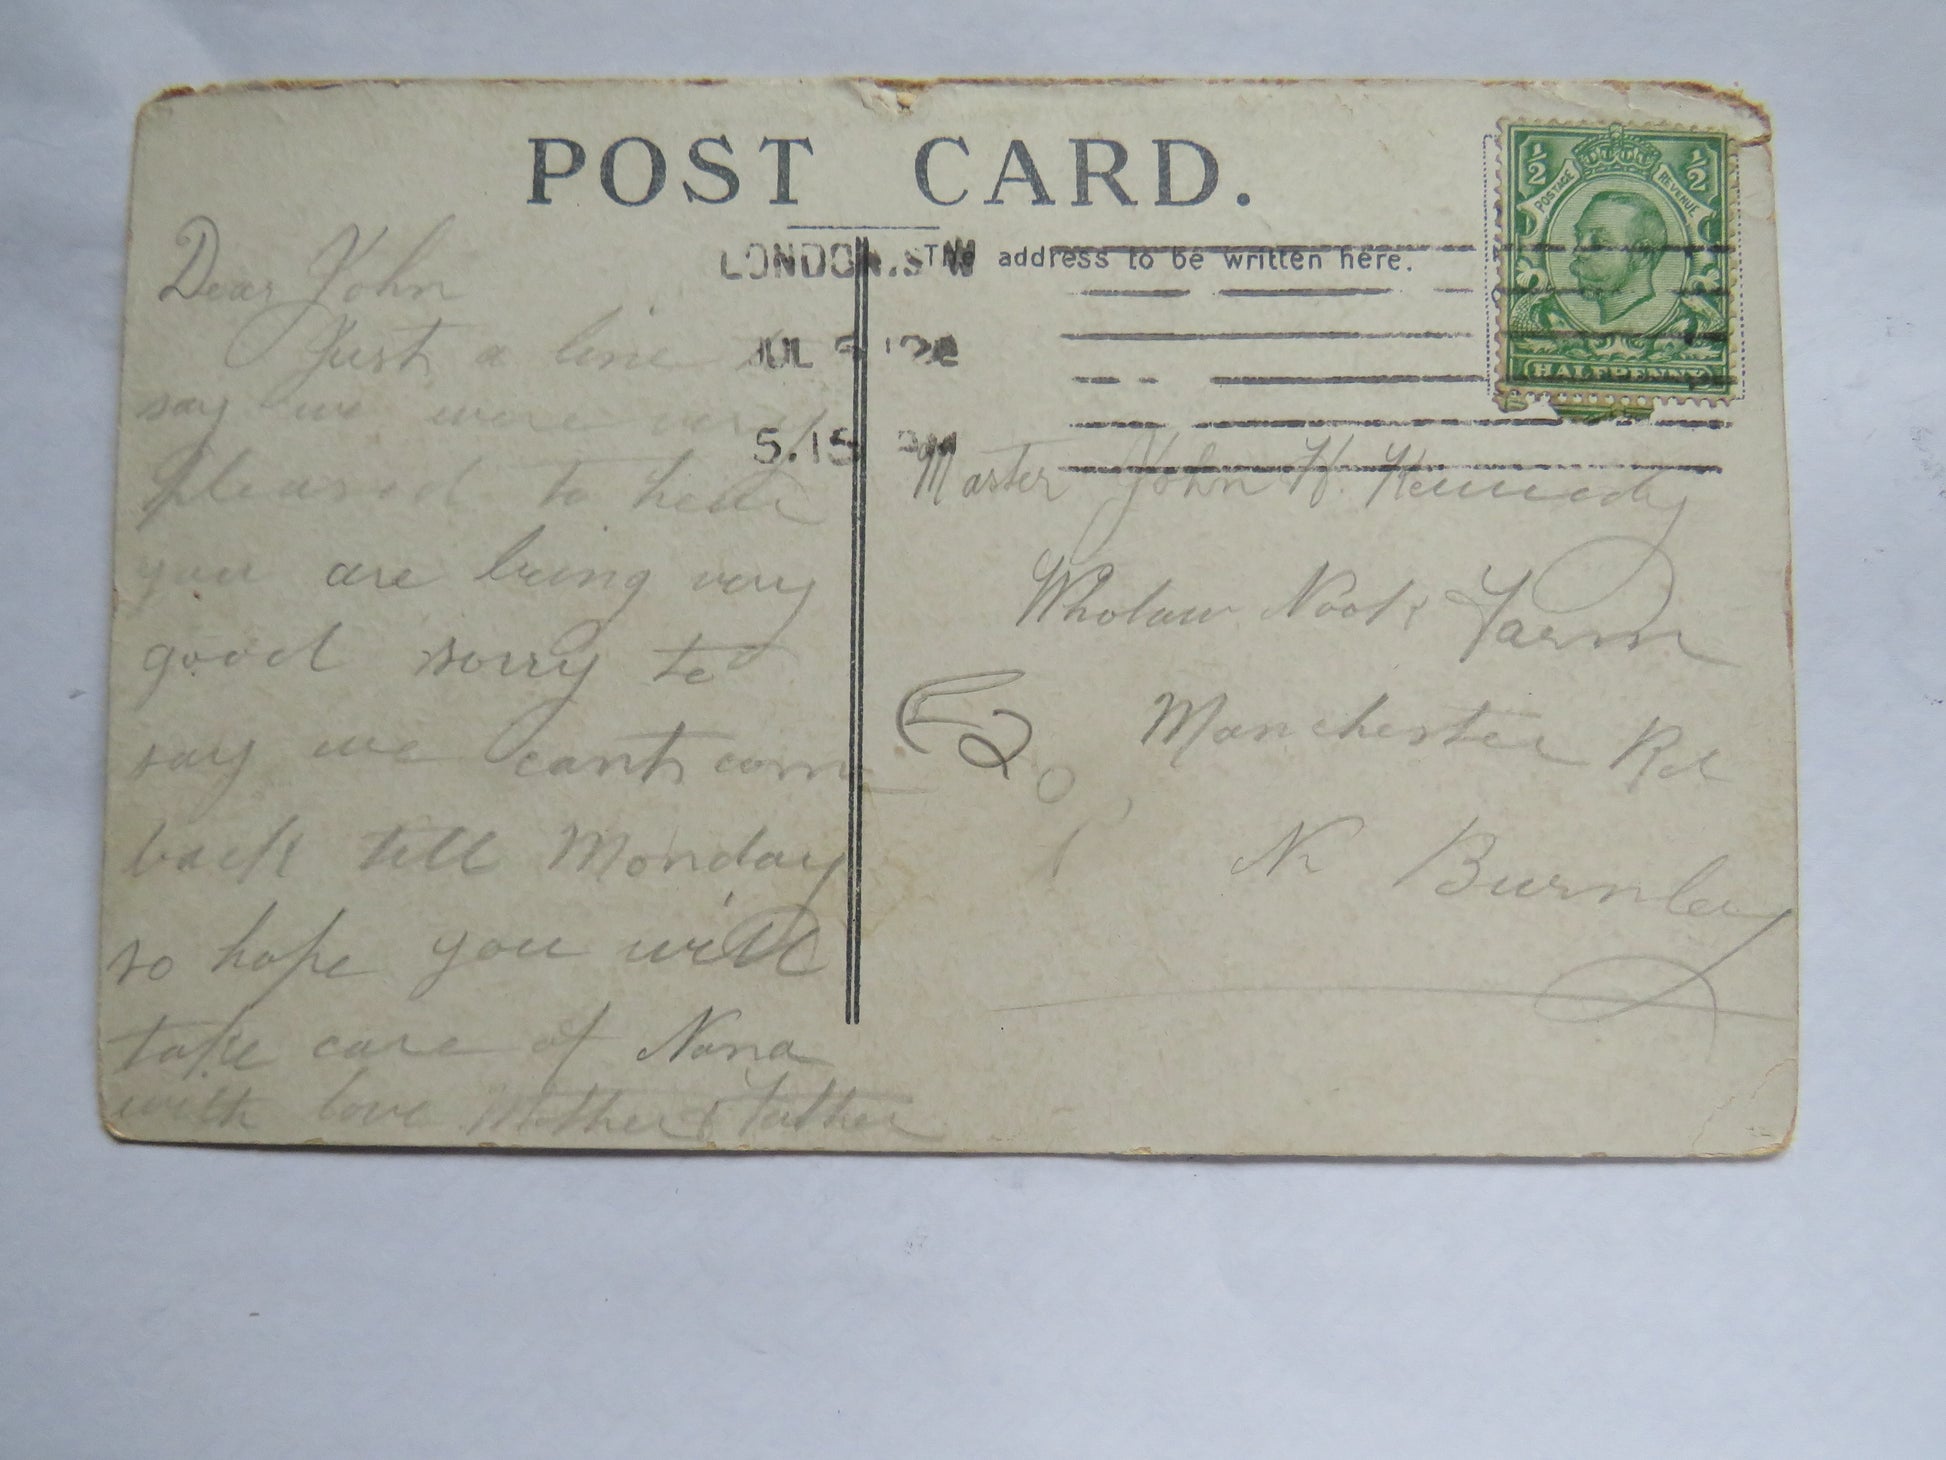 POST CARD.
The address to be written here.
LONDON.S W
JUL
5.15 PM
½ ½
POSTAGE REVENUE
HALFPENNY
Dear John
Just a line to
say we were very
pleased to hear
you are being very
good sorry to
say we cant com
back till Monday
so hope you will
take care of Nana
with love Mother & Father
Master John H. Kennedy
Wholaw Nook Farm
Manchester Rd
Nr Burnley